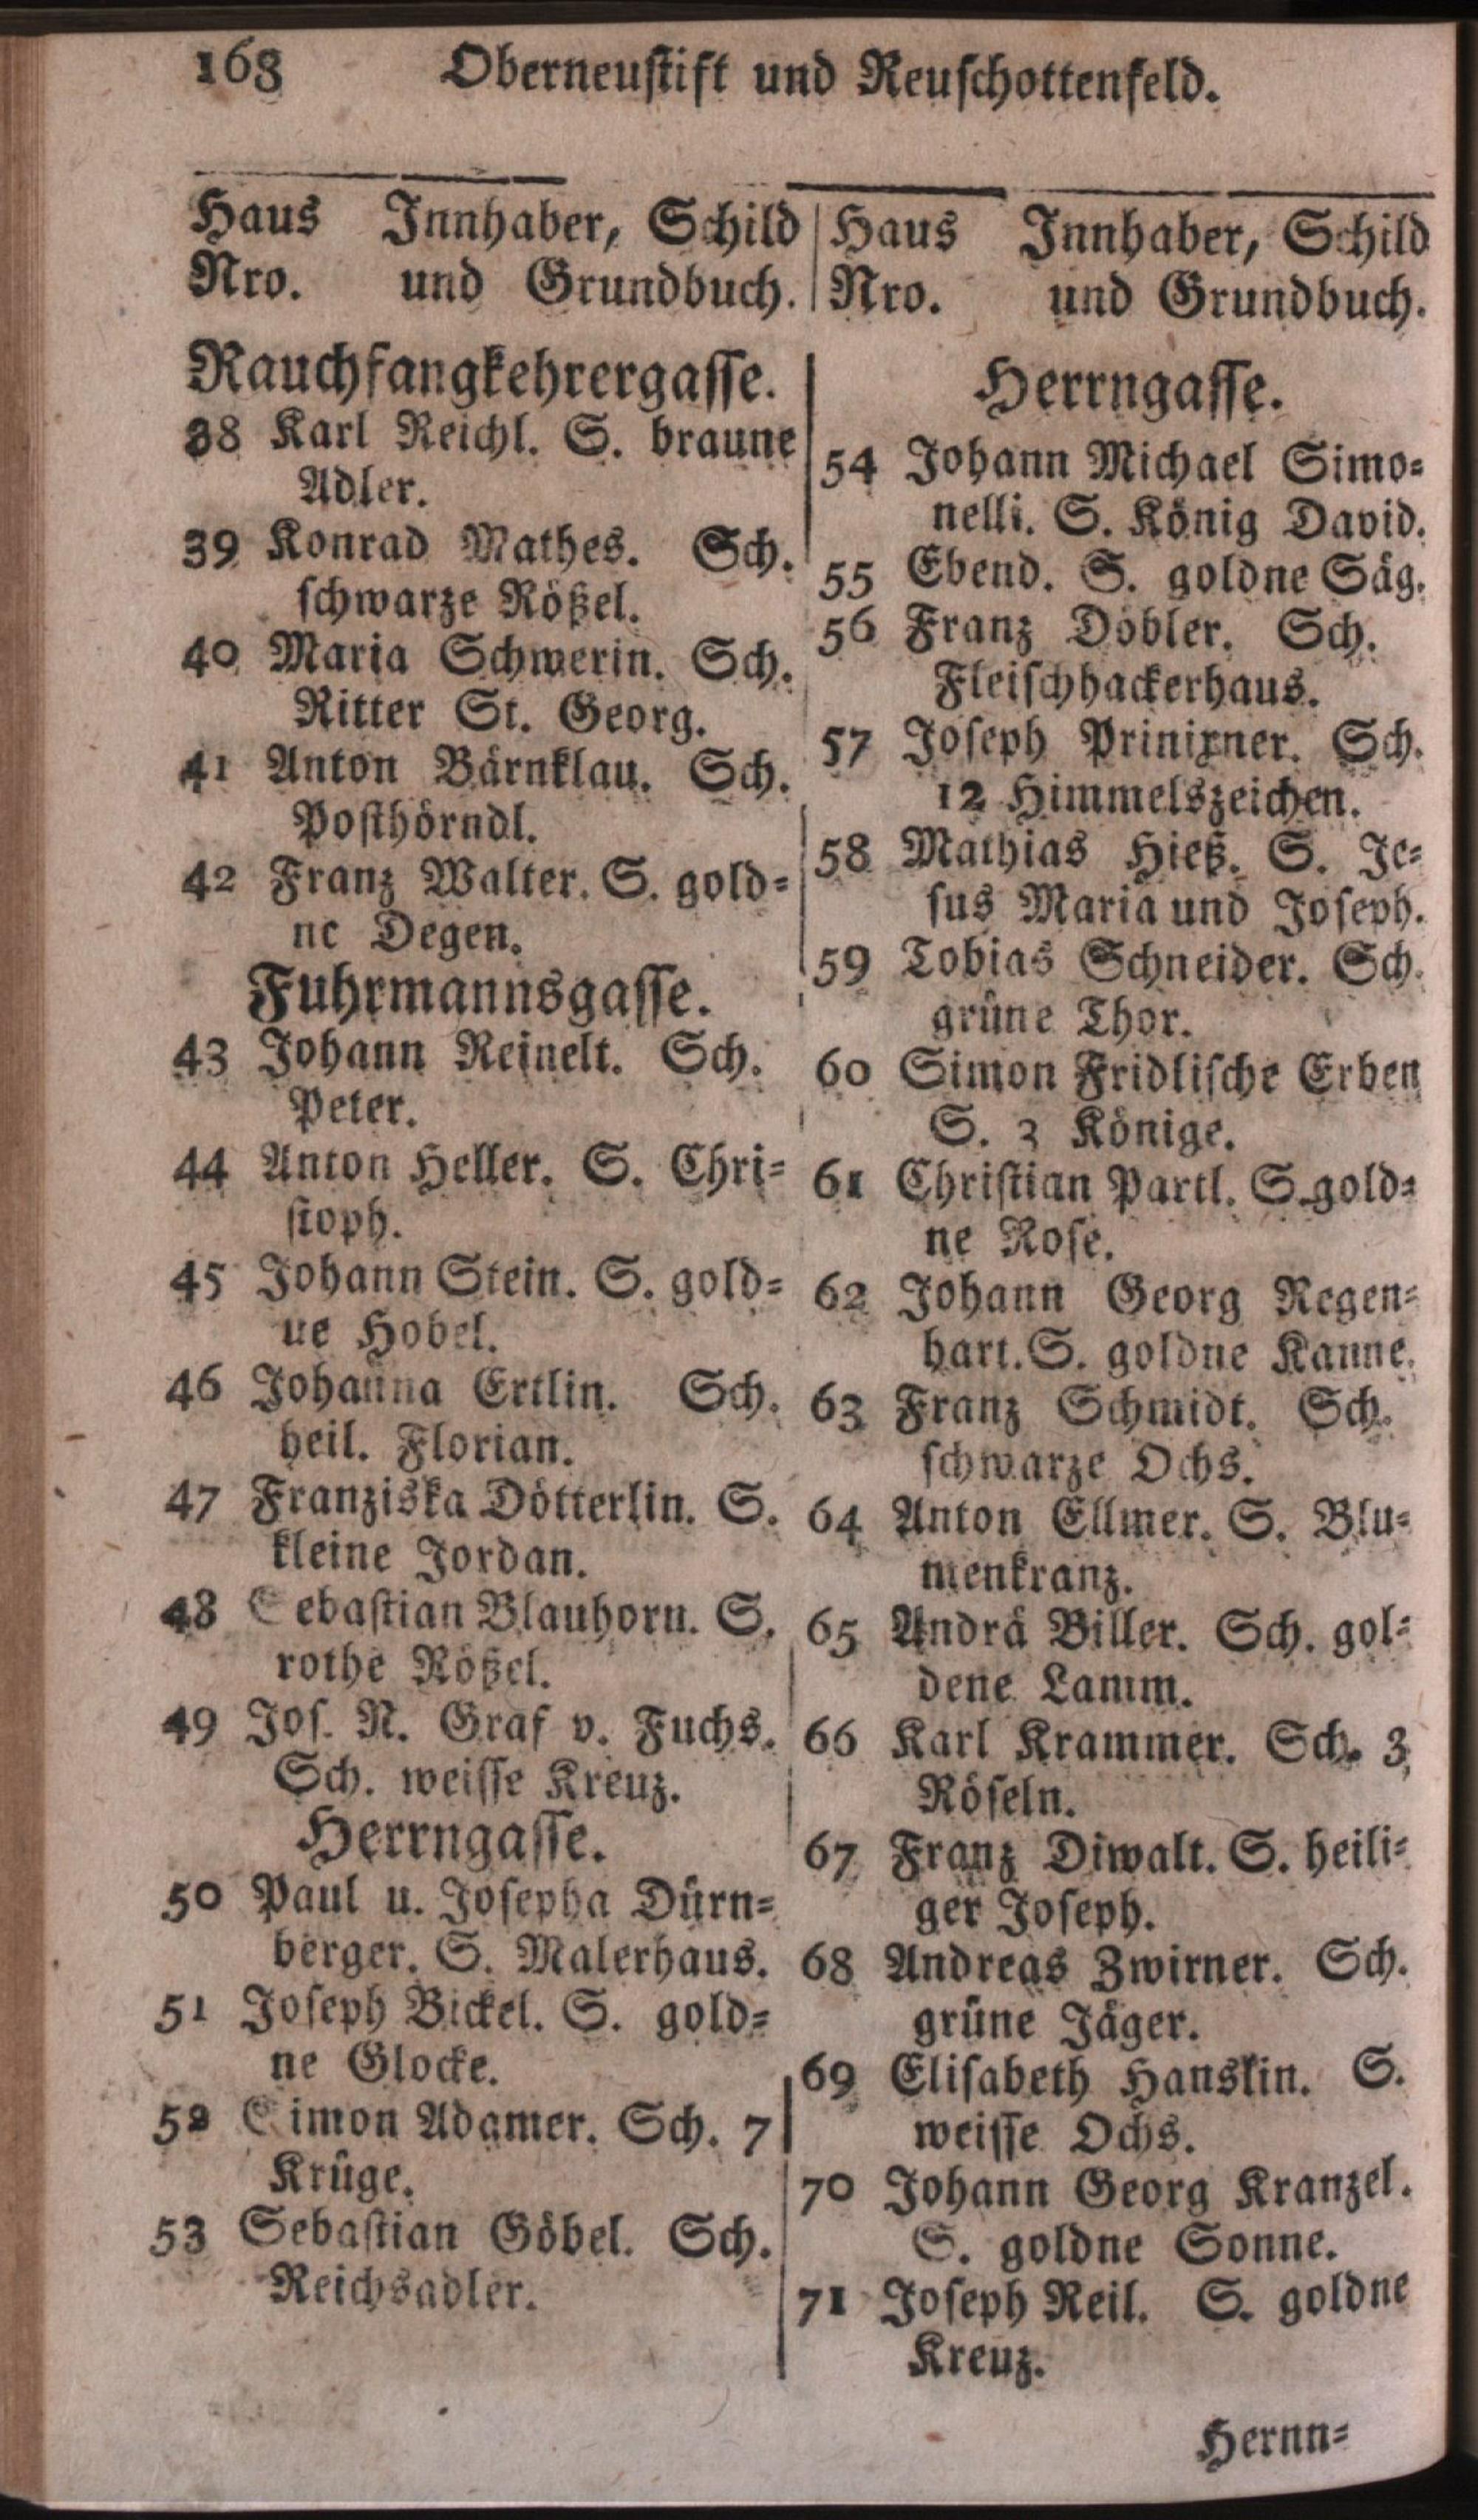 168 Oberneustift und Neuschottenfeld.
Haus Innhaber, Schild
Nro. und Grundbuch.
Rauchfangkehrergasse.
38 Karl Reichl. S. braune
Adler.
39 Konrad Mathes. Sch.
schwarze Rößel.
40 Maria Schwerin. Sch.
Ritter St. Georg.
41 Anton Bärnklau. Sch.
Posthörndl.
42 Franz Walter. S. gold-
ne Degen.
Fuhrmannsgasse.
43 Johann Reinelt. Sch.
Peter.
44 Anton Heller. S. Chri-
stoph.
45 Johann Stein. S. gold-
ne Hobel.
46 Johanna Ertlin. Sch.
heil. Florian.
47 Franziska Dötterlin. S.
kleine Jordan.
48 Sebastian Blauhorn. S.
rothe Rößel.
49 Jos. N. Graf v. Fuchs.
Sch. weisse Kreuz.
Herrngasse.
50 Paul u. Josepha Dürn-
berger. S. Malerhaus.
51 Joseph Bickel. S. gold-
ne Glocke.
52 Simon Adamer. Sch. 7
Krüge.
53 Sebastian Göbel. Sch.
Reichsadler.
Haus Innhaber, Schild
Nro. und Grundbuch.
Herrngasse.
54 Johann Michael Simo-
nelli. S. König David.
55 Ebend. S. goldne Säg.
56 Franz Döbler. Sch.
Fleischhackerhaus.
57 Joseph Prinixner. Sch.
12 Himmelszeichen.
58 Mathias Hieß. S. Je-
sus Maria und Joseph.
59 Tobias Schneider. Sch.
grüne Thor.
60 Simon Fridlische Erben
S. 3 Könige.
61 Christian Partl. S. gold-
ne Rose.
62 Johann Georg Regen-
hart. S. goldne Kanne.
63 Franz Schmidt. Sch.
schwarze Ochs.
64 Anton Ellmer. S. Blu-
menkranz.
65 Andrä Biller. Sch. gol-
dene Lamm.
66 Karl Krammer. Sch. 3
Röseln.
67 Franz Diwalt. S. heili-
ger Joseph.
68 Andreas Zwirner. Sch.
grüne Jäger.
69 Elisabeth Hanskin. S.
weisse Ochs.
70 Johann Georg Kranzel.
S. goldne Sonne.
71 Joseph Reil. S. goldne
Kreuz.
Hernn-